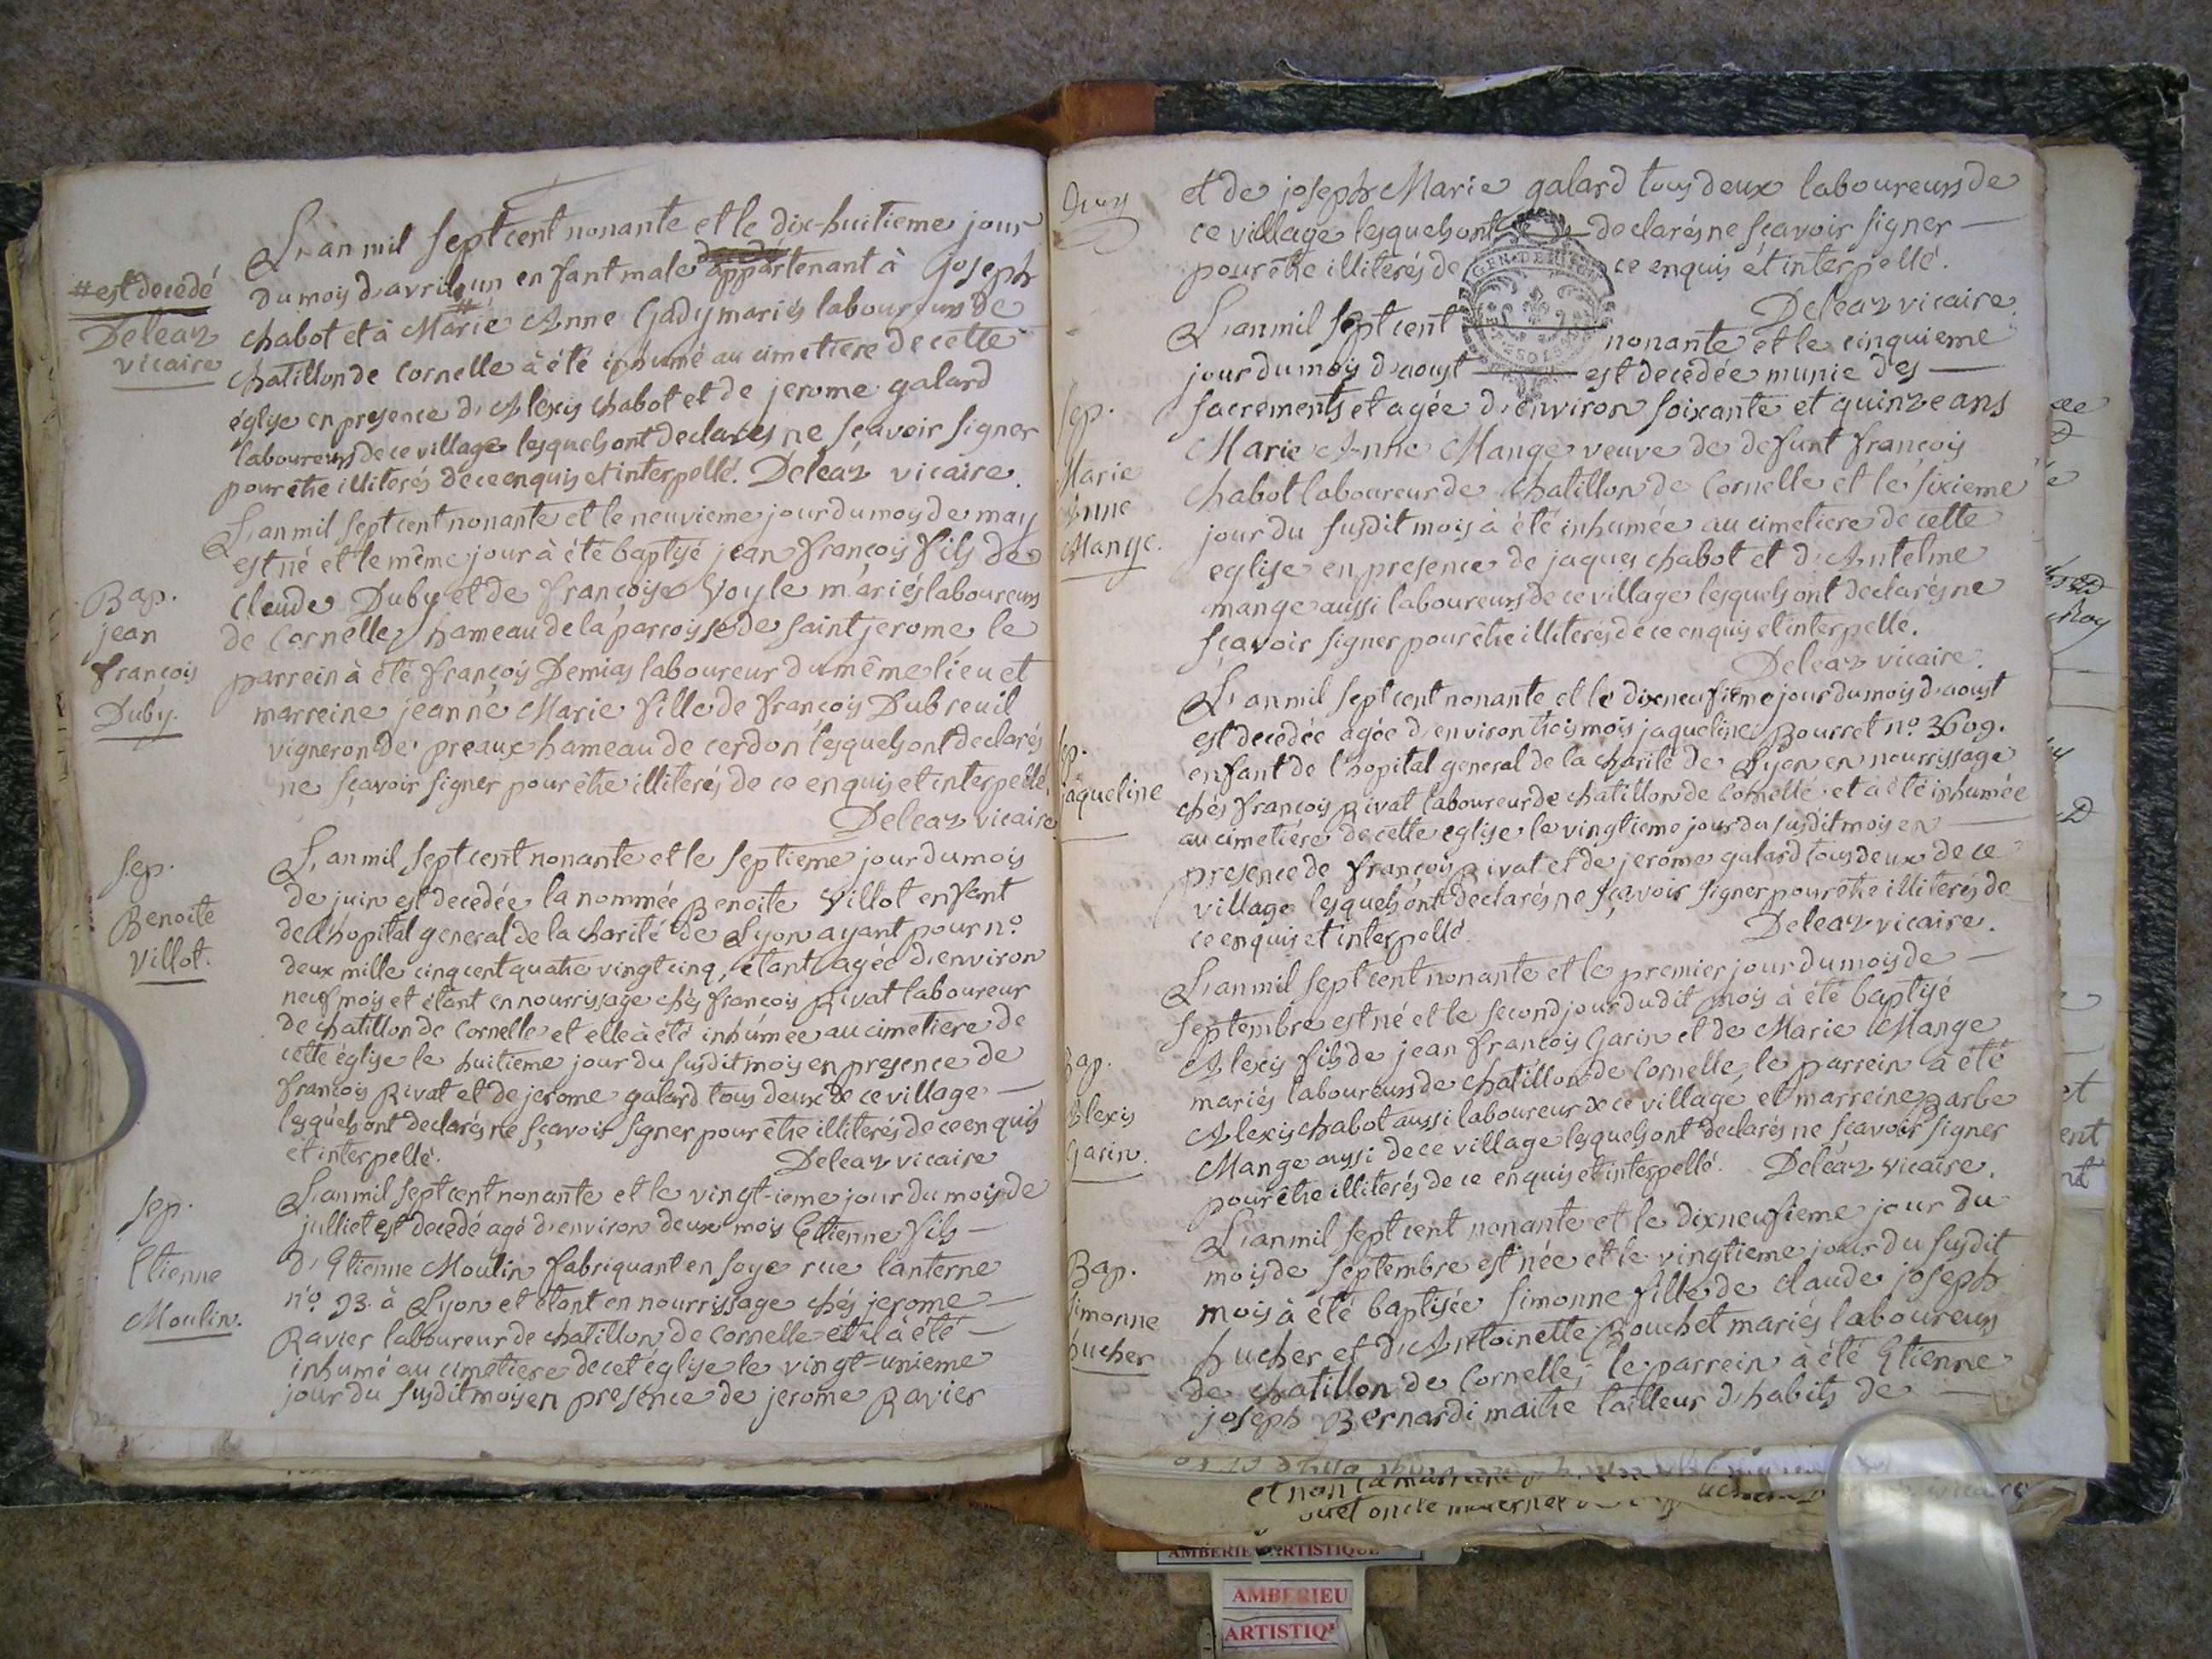 L'an mil sept cent nonante et le dix-huitieme jour
du mois d'avril # un enfant male appartenant à joseph
chabot et à Marie Anne Gady mariés laboureurs de
chatillon de Cornelle à été inhumé au cimetiere de cette
église en presence d'Alexis Chabot et de jerome galard
laboureurs de ce village lesquels ont declarés ne sçavoir signer
pour être illiterés de ce enquis et interpellé. Deleaz vicaire.
# est decedé
Deleaz
vicaire
L'an mil sept cent nonante et le neuvieme jour du moy de may
est né et le même jour à été baptisé jean françois fils de
Claude Duby et de françoise Goyle mariés laboureurs
de Cornelle, hameau de la parroisse de saint jerome, le
parrein à été françois Demias laboureur du même lieu et
marreine jeanne Marie fille de françois Dubreuil
vigneron de preaux hameau de cerdon lesquels ont declarés
ne sçavoir signer pour être illiterés de ce enquis et interpellé.
Deleaz vicaire
Bap.
jean
françois
Duby.
L'an mil sept cent nonante et le septieme jour du mois
de juin est decedée la nommée Benoite Villot enfant
de l'hopital general de la charité de Lyon ayant pour n°.
deux mille cinq cent quatre vingt cinq, étant agée d'environ
neuf mois et étant en nourrissage chés françois Rivat laboureur
de chatillon de Cornelle et elle à été inhumée au cimetiere de
cette église le huitieme jour du susdit mois en presence de
françois Rivat et de jerome galard tous deux de ce village
lesquels ont declarés ne sçavoir signer pour être illiterés de ce enquis
et interpellé. Deleaz vicaire
Sep.
Benoite
Villot.
L'an mil sept cent nonante et le vingt-ieme jour du mois de
julliet est decedé agé d'environ deux mois Ettienne fils
d'Etienne Moulin fabriquant en soye rue lanterne
n°. 93. à Lyon et étant en nourrissage chés jerome
Ravier laboureur de chatillon de Cornelle et il à été
inhumé au cimetiere de cet église le vingt-unieme
jour du susdit mois en presence de jerome Ravier
Sep.
Etienne
Moulin.
et de joseph Marie galard tous deux laboureurs de
ce village lesquels ont declarés ne sçavoir signer
pour être illiterés de ce enquis et interpellé.
Deleaz vicaire.
GEN. DE
L'an mil sept cent nonante et le cinquieme
jour du mois d'aoust est decedée munie des
sacrements et agée d'environ soixante et quinze ans
Marie Anne Mange veuve de defunt françois
Chabot laboureur de Chatillon de Cornelle et le sixieme
jour du susdit mois à été inhumée au cimetiere de cette
eglise en presence de jaques chabot et d'Antelme
mange aussi laboureurs de ce village lesquels ont declarés ne
sçavoir signer pour être illiterés de ce enquis et interpellé.
Deleaz vicaire.
Sep.
Marie
Anne
Mange.
L'an mil sept cent nonante et le dixneufieme jour du mois d'aoust
est decedée agée d'environ trois mois jaqueline Bourret n°. 3609.
enfant de l'hopital general de la charité de Lyon en nourrissage
chés françois Rivat laboureur de chatillon de Cornelle et à été inhumée
au cimetiere de cette eglise le vingtieme jour du susdit mois en
presence de françois Rivat et de jerome galard tous deux de ce
village lesquels ont declarés ne sçavoir signer pour être illiterés de
ce enquis et interpellé. Deleaz vicaire.
ep.
jaqueline
L'an mil sept cent nonante et le premier jour du mois de
septembre est né et le second jour du dit mois à été baptisé
Alexis fils de jean françois Garin et de Marie Mange
mariés laboureurs de chatillon de Cornelle, le parrein à été
Alexis chabot aussi laboureur de ce village et marreine Barbe
Mange aussi de ce village lesquels ont declarés ne sçavoir signer
pour être illiterés de ce enquis et interpellé. Deleaz vicaire.
Bap.
Alexis
Garin.
L'an mil sept cent nonante et le dixneufieme jour du
mois de septembre est née et le vingtieme jour du susdit
mois à été baptisée Simonne fille de claude joseph
hucher et d'Antoinette Bouchet mariés laboureurs
de chatillon de Cornelle, le parrein à été Etienne
joseph Bernardi maitre tailleur d'habits de
Bap.
Simonne
hucher
et non la marreine
oncle maternel
AMBERIE ARTISTIQUE
AMBERIEU
ARTISTIQ